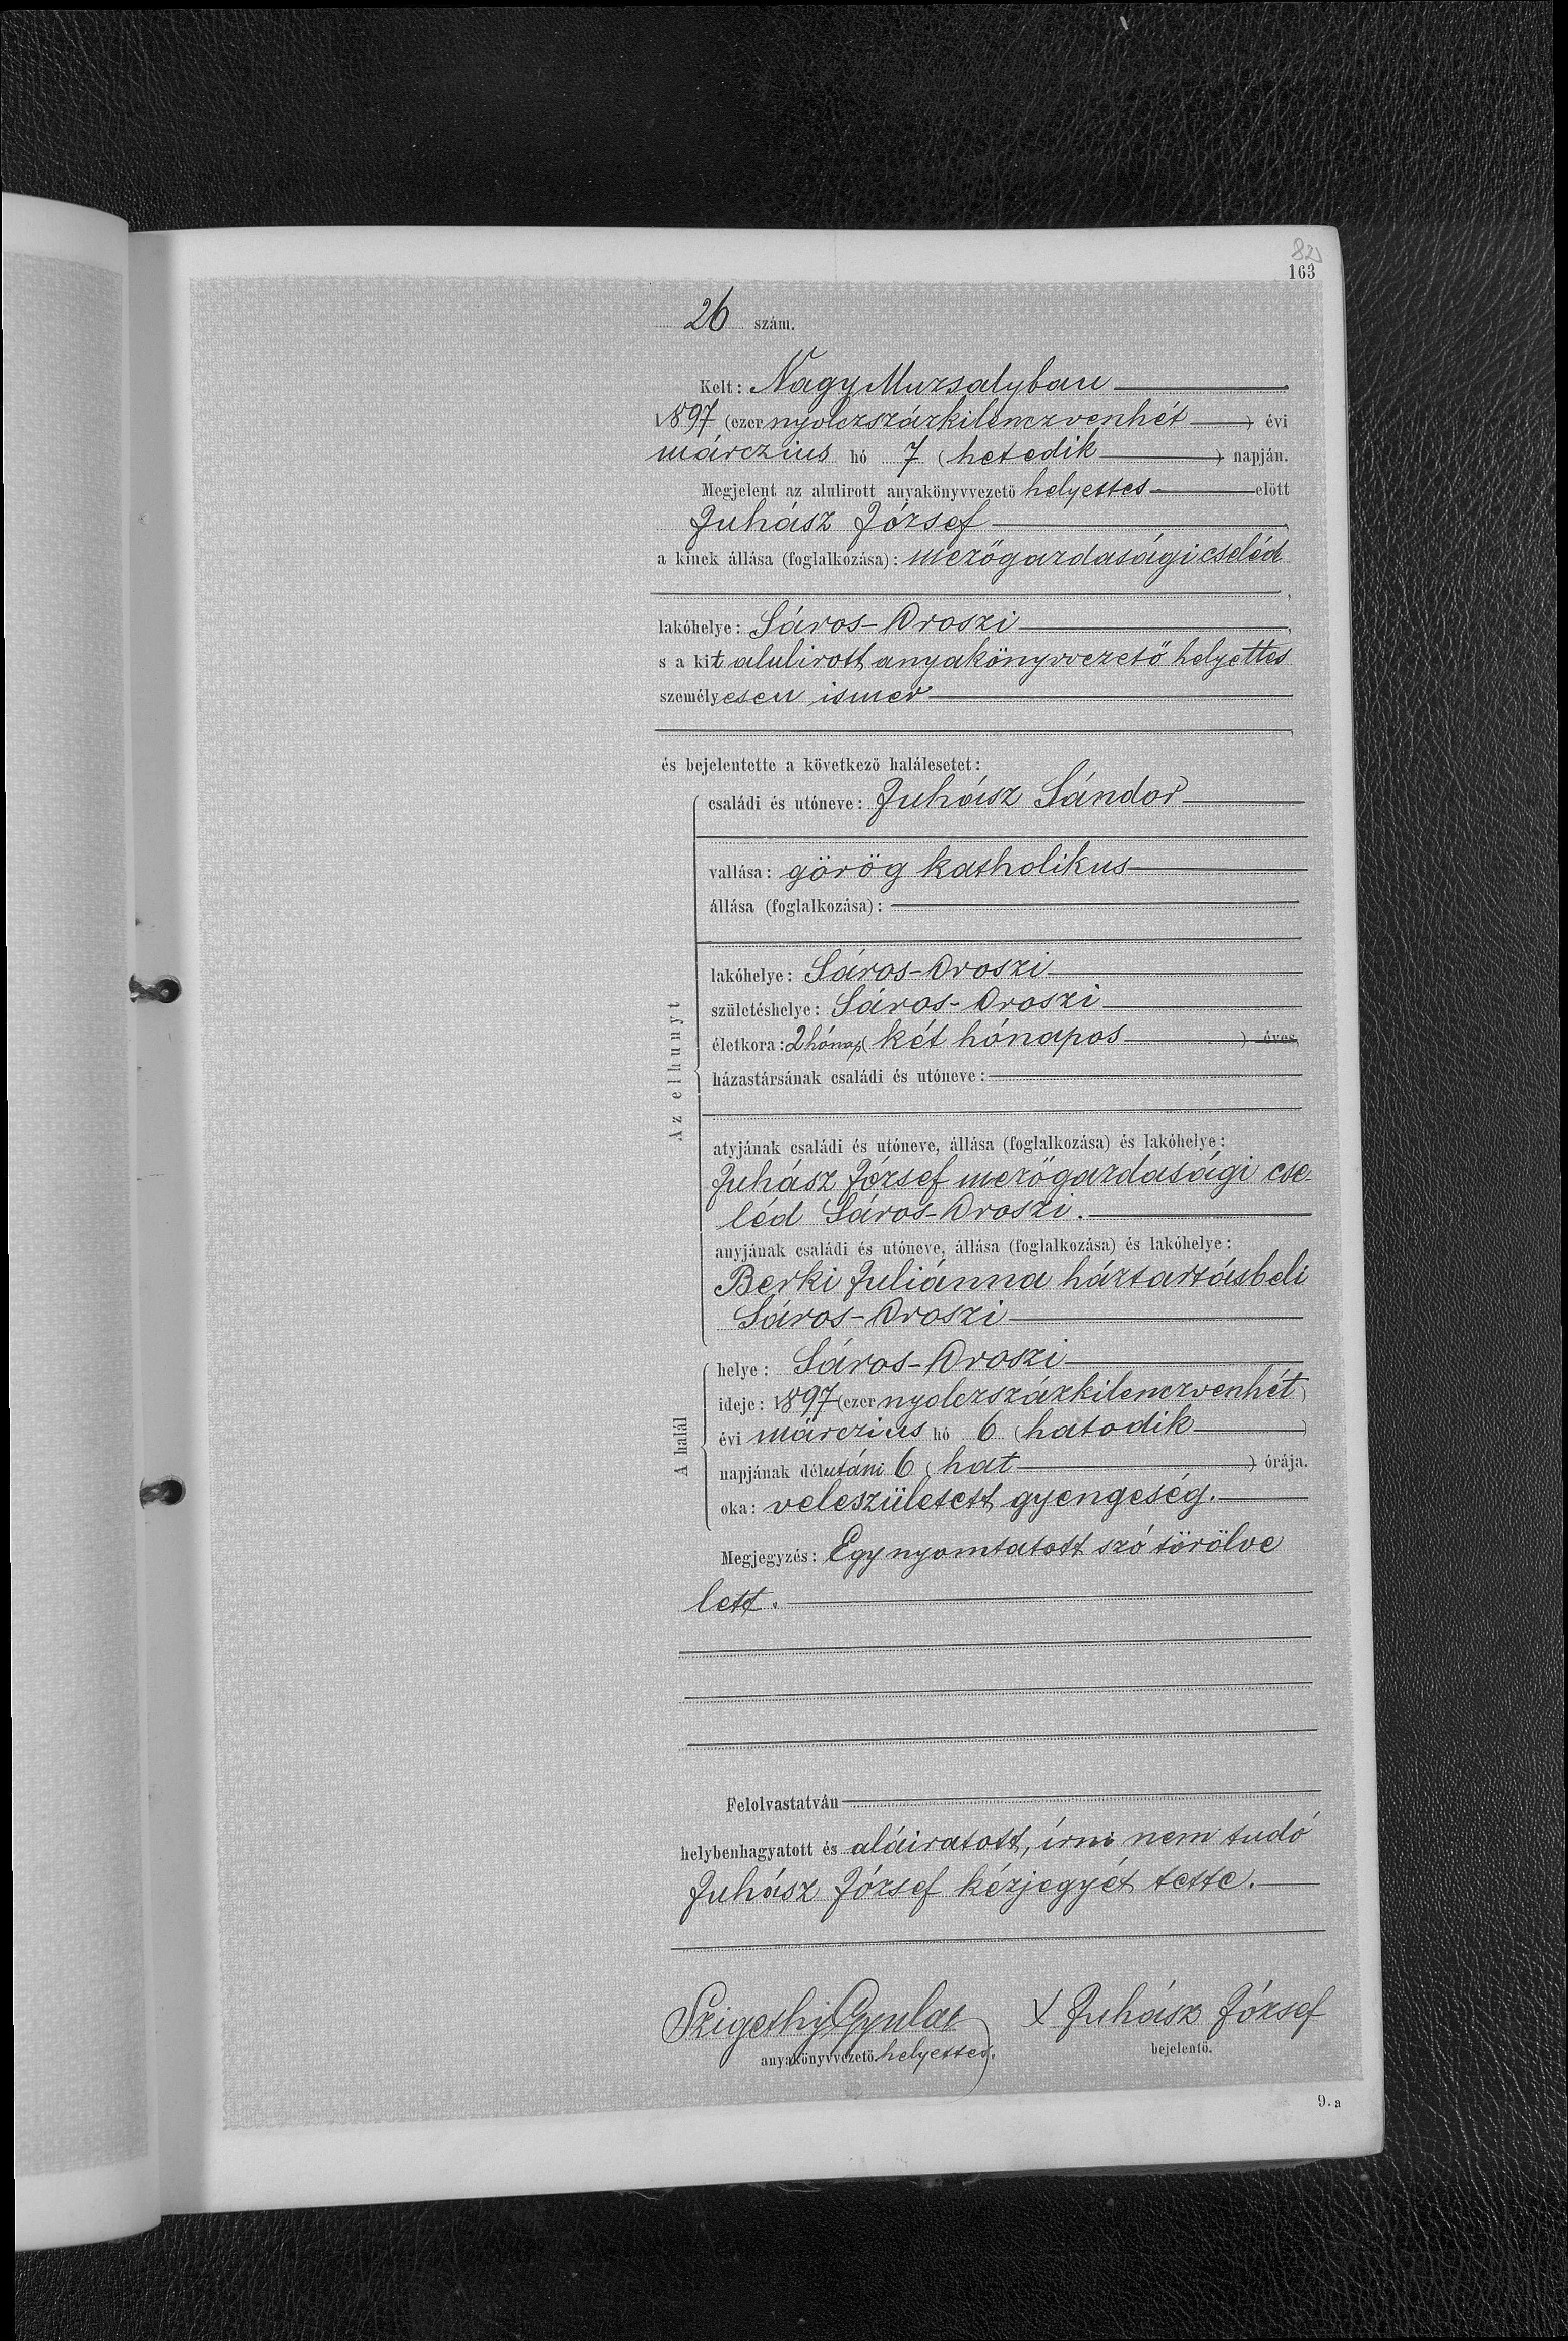 82
163
26 szám.
Kelt: Nagy Muzsalyban
1897 (ezer nyolczszázkilenczvenhét) évi
márczius hó 7 (hetedik) napján.
Megjelent az alulirott anyakönyvvezető helyettes előtt
Juhász József,
a kinek állása (foglalkozása): mezőgazdasági cseléd
,
lakóhelye: Sáros-Oroszi,
s a kit alulirott anyakönyvvezető helyettes
személyesen ismer
,
és bejelentette a következő halálesetet:
Az elhunyt
családi és utóneve: Juhász Sándor
vallása: görög katholikus
állása (foglalkozása):
lakóhelye: Sáros-Oroszi
születéshelye: Sáros-Oroszi
életkora: 2 hónap (két hónapos) éves,
házastársának családi és utóneve:
atyjának családi és utóneve, állása (foglalkozása) és lakóhelye:
Juhász József mezőgazdasági cse-
léd Sáros-Oroszi.
anyjának családi és utóneve, állása (foglalkozása) és lakóhelye:
Berki Juliánna háztartásbeli
Sáros-Oroszi
A halál
helye: Sáros-Oroszi
ideje: 1897 (ezer nyolczszázkilenczvenhét)
évi márczius hó 6 (hatodik)
napjának délutáni 6 (hat) órája.
oka: veleszületett gyengeség.
Megjegyzés: Egy nyomtatott szó törölve
lett.
Felolvastatván
helybenhagyatott és aláiratott, írni nem tudó
Juhász József kézjegyét tette.
Szigethy Gyula X Juhász József
anyakönyvvezető helyettes. bejelentő.
9. a